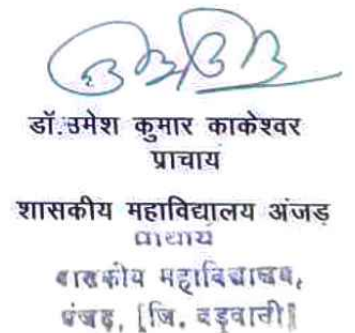 डॉ.उमेश कुमार काकेश्वर
प्राचार्य
शासकीय महाविद्यालय अंजड़
प्राचार्य
शासकीय महाविद्यालय,
अंजड़, [जि. बड़वानी]